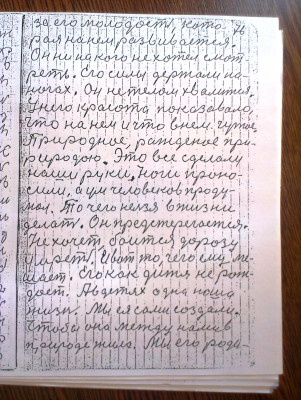 за его молодость, кото
рая на нем развивается.
Он ни на кого не хотел смот
реть. Его силы держали на
ногах. Он не телом хвалится,
У него красота показывало,
что на нем и что в нем. чужое
Природное, рожденое при
родою. Это все сделали
наши руки. ноги прино-
сили, а ум человеков проду
мал. То чего нельзя в жизни
делать. Он предстерегается.
Не хочет боится дорогу
умереть. И вот то, чего ему ме-
шает. Его как дитя не рож-
дает. А в детях одна наша
жизнь. Мы ея сами создали.
Чтобы она между нами в
природе жила. Мы его роди-